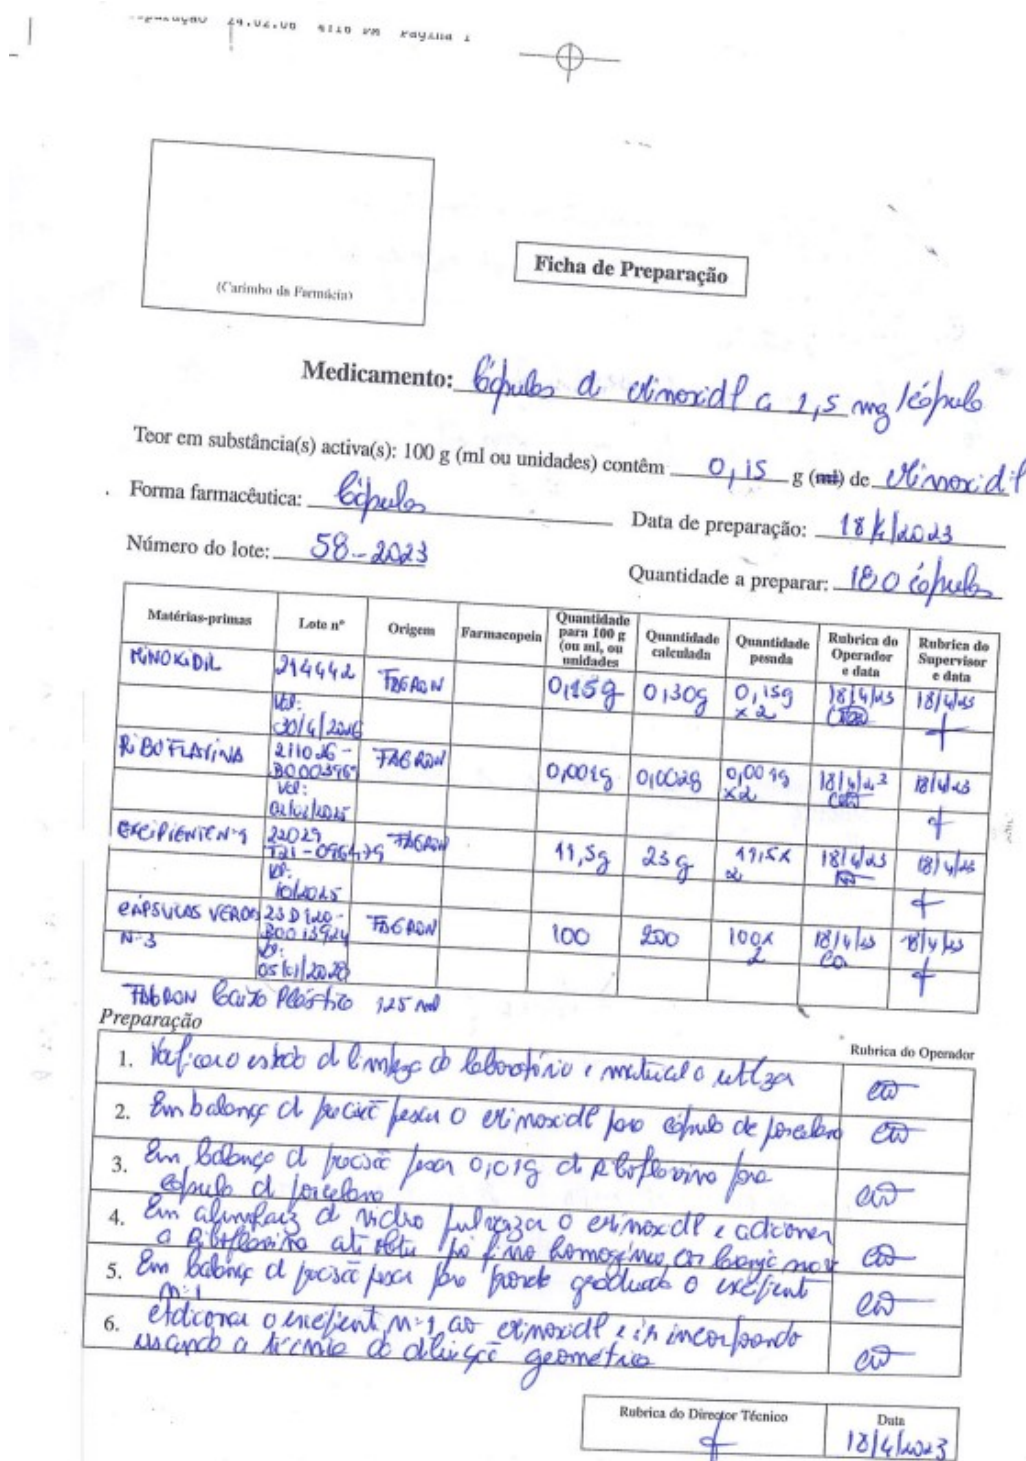 24.02.06 4:16 PM Página 1
(Carimbo da Farmácia)
Ficha de Preparação
Medicamento: Cápsulas de Minoxidil a 1,5 mg/cápsula
Teor em substância(s) activa(s): 100 g (ml ou unidades) contêm 0,15 g (ml) de Minoxidil
Forma farmacêutica: Cápsulas
Data de preparação: 18/4/2023
Número do lote: 58-2023
Quantidade a preparar: 180 cápsulas
Matérias-primas Lote nº Origem Farmacopeia Quantidade para 100 g (ou ml, ou unidades Quantidade calculada Quantidade pesada Rubrica do Operador e data Rubrica do Supervisor e data
MINOXIDIL 214442 FAGRON 0,15g 0,30g 0,15g x2 18/4/23 18/4/23
Val: 30/4/2026
RIBOFLAVINA 211026- FAGRON 0,001g 0,002g 0,001g x2 18/4/23 18/4/23
Val: 02/02/2025
EXCIPIENTE Nº1 22029 FAGRON 11,5g 23g 11,5x 2 18/4/23 18/4/23
Val: 10/2025
CÁPSULAS Nº3 FAGRON 100 200 100x 2 18/4/23 18/4/23
FAGRON Caixa Plástico 125 ml
Preparação
Rubrica do Operador
1. Verificar o estado de limpeza do laboratório e material a utilizar
2. Em balança de precisão pesar o minoxidil para cápsula de porcelana
3. Em balança de precisão pesar 0,01g de Riboflavina para
cápsula de porcelana
4. Em almofariz de vidro pulverizar o minoxidil e adicionar
a Riboflavina até obter pó fino homogéneo, cor laranja
5. Em balança de precisão pesar para graduada o excipiente
nº1
6. Adicionar o excipiente nº1 ao minoxidil e ir incorporando
usando a técnica de diluição geométrica
Rubrica do Director Técnico Data
18/4/2023